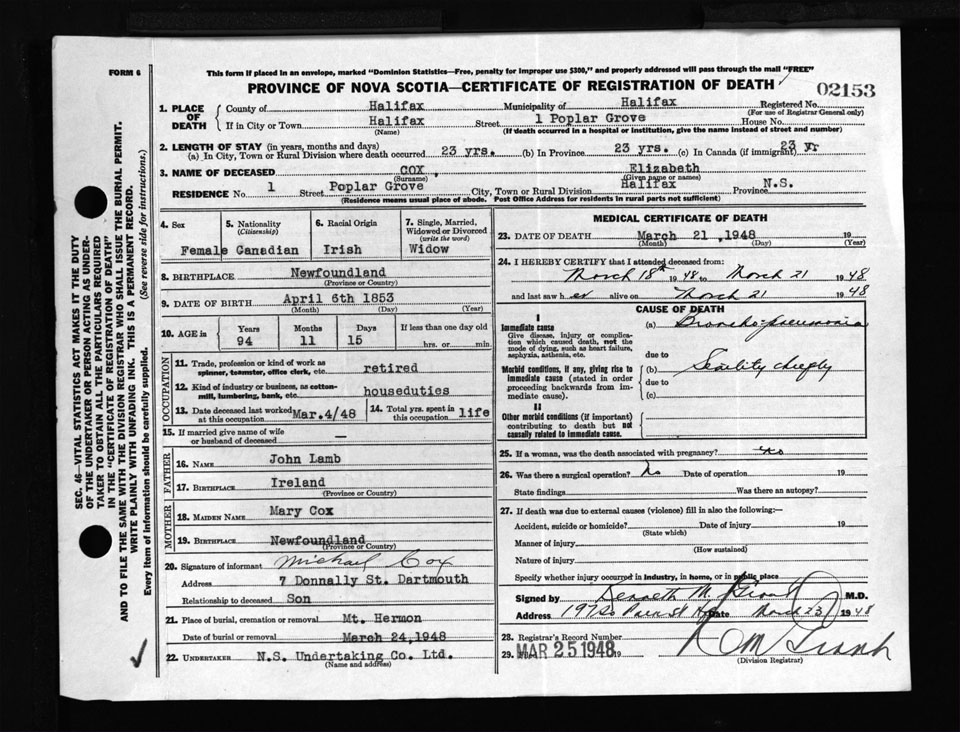 FORM 6
This form if placed in an envelope, marked "Dominion Statistics—Free, penalty for improper use $300," and properly addressed will pass through the mail "FREE"
PROVINCE OF NOVA SCOTIA—CERTIFICATE OF REGISTRATION OF DEATH
02153
SEC. 46—VITAL STATISTICS ACT MAKES IT THE DUTY
OF THE UNDERTAKER OR PERSON ACTING AS UNDER-
TAKER TO OBTAIN ALL THE PARTICULARS REQUIRED
IN THE "CERTIFICATE OF REGISTRATION OF DEATH"
AND TO FILE THE SAME WITH THE DIVISION REGISTRAR WHO SHALL ISSUE THE BURIAL PERMIT.
WRITE PLAINLY WITH UNFADING INK. THIS IS A PERMANENT RECORD.
Every item of information should be carefully supplied. (See reverse side for instructions.)
1. PLACE OF DEATH
County of Halifax Municipality of Halifax Registered No.
(For use of Registrar General only)
If in City or Town Halifax Street 1 Poplar Grove House No.
(Name) (If death occurred in a hospital or institution, give the name instead of street and number)
2. LENGTH OF STAY (in years, months and days)
(a) In City, Town or Rural Division where death occurred 23 yrs. (b) In Province 23 yrs. (c) In Canada (if immigrant) 23 yr
3. NAME OF DECEASED COX, Elizabeth
(Surname) (Given name or names)
RESIDENCE No. 1 Street Poplar Grove City, Town or Rural Division Halifax Province N.S.
(Residence means usual place of abode. Post Office Address for residents in rural parts not sufficient)
4. Sex
Female
5. Nationality
(Citizenship)
Canadian
6. Racial Origin
Irish
7. Single, Married,
Widowed or Divorced
(write the word)
Widow
8. BIRTHPLACE Newfoundland
(Province or Country)
9. DATE OF BIRTH April 6th 1853
(Month) (Day) (Year)
10. AGE in Years Months Days If less than one day old
94 11 15 hrs. or min.
OCCUPATION
11. Trade, profession or kind of work as
spinner, teamster, office clerk, etc. retired
12. Kind of industry or business, as cotton-
mill, lumbering, bank, etc. houseduties
13. Date deceased last worked
at this occupation Mar.4/48
14. Total yrs. spent in
this occupation life
15. If married give name of wife
or husband of deceased —
FATHER
16. NAME John Lamb
17. BIRTHPLACE Ireland
(Province or Country)
MOTHER
18. MAIDEN NAME Mary Cox
19. BIRTHPLACE Newfoundland
(Province or Country)
20. Signature of informant Michael Cox
Address 7 Donnally St. Dartmouth
Relationship to deceased Son
21. Place of burial, cremation or removal Mt. Hermon
Date of burial or removal March 24,1948
22. UNDERTAKER N.S. Undertaking Co. Ltd.
(Name and address)
MEDICAL CERTIFICATE OF DEATH
23. DATE OF DEATH March 21 ,1948 19
(Month) (Day) (Year)
24. I HEREBY CERTIFY that I attended deceased from:
March 18th 1948 to March 21 1948
and last saw h er alive on March 21 1948
CAUSE OF DEATH
I
Immediate cause
Give disease, injury or complica-
tion which caused death, not the
mode of dying, such as heart failure,
asphyxia, asthenia, etc.
(a) Broncho-pneumonia
due to
Morbid conditions, if any, giving rise to
immediate cause (stated in order
proceeding backwards from im-
mediate cause).
(b) Senility chiefly
due to
(c)
II
Other morbid conditions (if important)
contributing to death but not
causally related to immediate cause.
25. If a woman, was the death associated with pregnancy? no
26. Was there a surgical operation? No Date of operation 19
State findings Was there an autopsy?
27. If death was due to external causes (violence) fill in also the following:—
Accident, suicide or homicide? Date of injury 19
(State which)
Manner of injury
(How sustained)
Nature of injury
Specify whether injury occurred in industry, in home, or in public place
Signed by Kenneth M. Grant M.D.
Address 197 So Park St Date March 23 1948
28. Registrar's Record Number
29. MAR 25 1948 19
(Division Registrar)